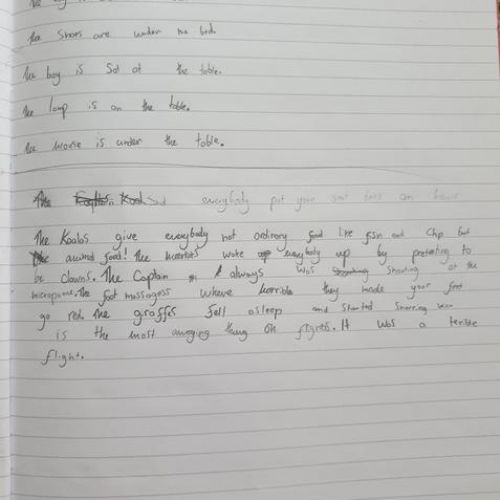 The
The Shoes are under the bed.
The boy is Sat at the table.
The lamp is on the table.
The mouse is under the table.
The said everybody put your seat on
The Koalas give everybody not ordinary food like fish and chip but
animal food! the woke up everybody up by pretending to
be clowns. The Captain always was Shouting at the
micropone. The foot massagess where horrible they made your feet
go red. the giraffes fell asleep and started snorring
is the most anoying thing on flights. It was a terible
flight.